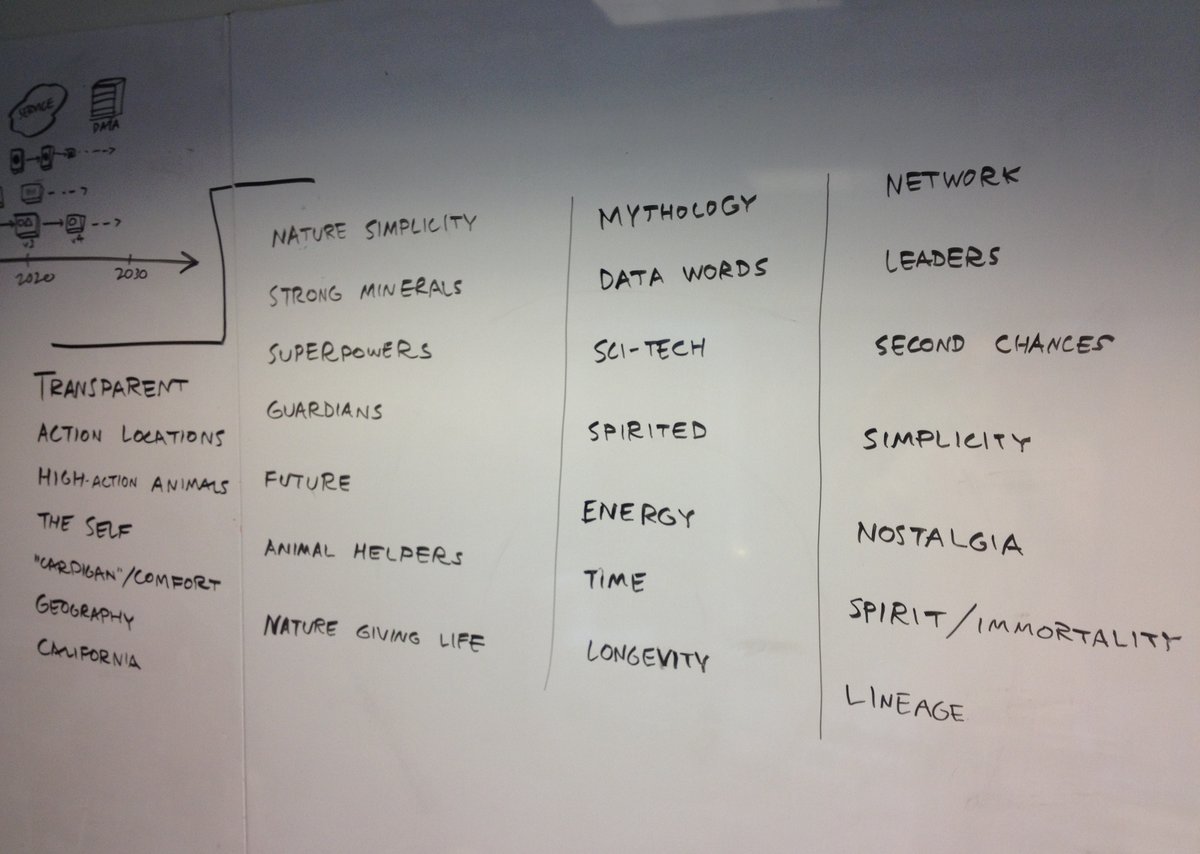 SERVICE
DATA
V3
V4
2020
2030
TRANSPARENT
ACTION LOCATIONS
HIGH-ACTION ANIMALS
THE SELF
"CARDIGAN"/COMFORT
GEOGRAPHY
CALIFORNIA
NATURE SIMPLICITY
STRONG MINERALS
SUPERPOWERS
GUARDIANS
FUTURE
ANIMAL HELPERS
NATURE GIVING LIFE
MYTHOLOGY
DATA WORDS
SCI-TECH
SPIRITED
ENERGY
TIME
LONGEVITY
NETWORK
LEADERS
SECOND CHANCES
SIMPLICITY
NOSTALGIA
SPIRIT/IMMORTALITY
LINEAGE